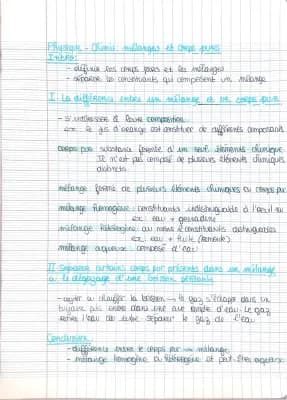 Physique - Chimie mélanges et corps purs
Intro:
- définir les corps purs et les mélanges
- séparer les constituants qui composent un mélange
I - La différence entre un mélange et un corps pur
- s'intéresser à leur composition
ex: le jus d'orange est constitué de différents composants
corps pur substance formée d'un seul élément chimique
Il n'est pas composé de plusieurs éléments chimiques
distincts
mélange formé de plusieurs éléments chimiques ou corps pur
mélange homogène: constituants indistinguable à l'oeil nu
ex: eau + grenadine
mélange hétérogène au moins 2 constituants distinguables
ex: eau + huile
mélange aqueux: composé d'eau
II Séparer certains corps pur présents dans un mélange
a le dégazage d'une boisson pétillante
- agiter ou chauffer la boisson → le gaz s'échappe dans un
tuyau puis entre dans une remplie d'eau. Le gaz
l'eau du tube séparer le gaz de l'eau
Conclusion:
- différence entre le corps pur mélange
- mélange homogène ou hétérogène et peut être aqueux